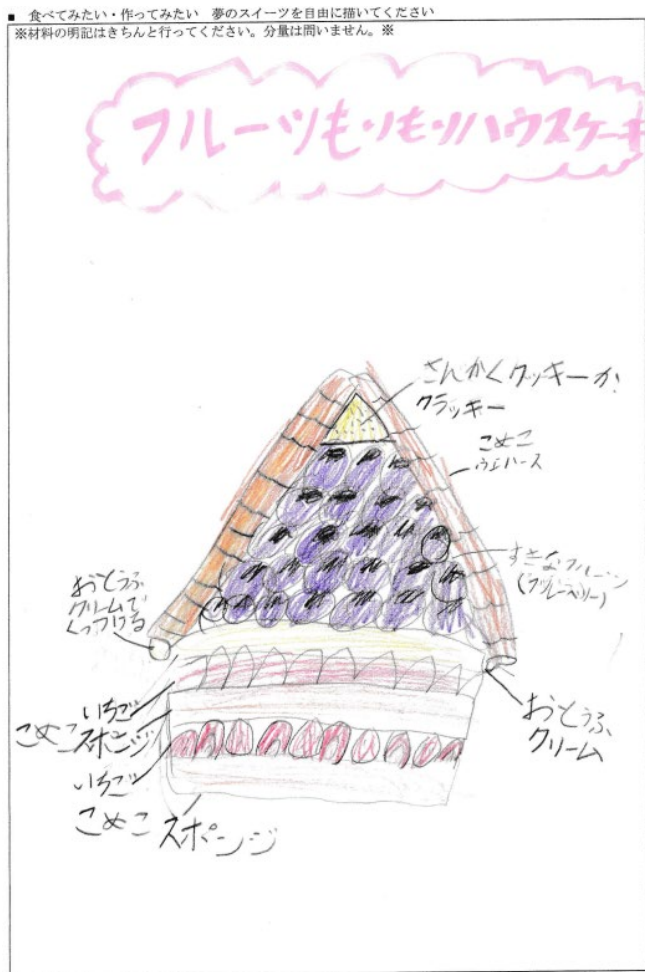 ■ 食べてみたい・作ってみたい 夢のスイーツを自由に描いてください
※材料の明記はきちんと行ってください。分量は問いません。※
フルーツもりもりハウスケーキ
さんかくクッキーか
クラッキー
こめこ
ウエハース
すきなフルーツ
(ブルーベリー)
おとうふ
クリームで
くっつける
いちご
こめこスポンジ
いちご
こめこスポンジ
おとうふ
クリーム